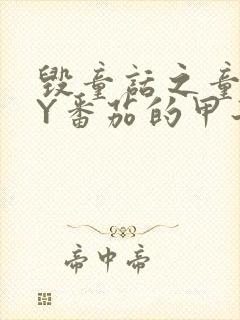 毁童话之童
Y番茄的甲
帝中帝